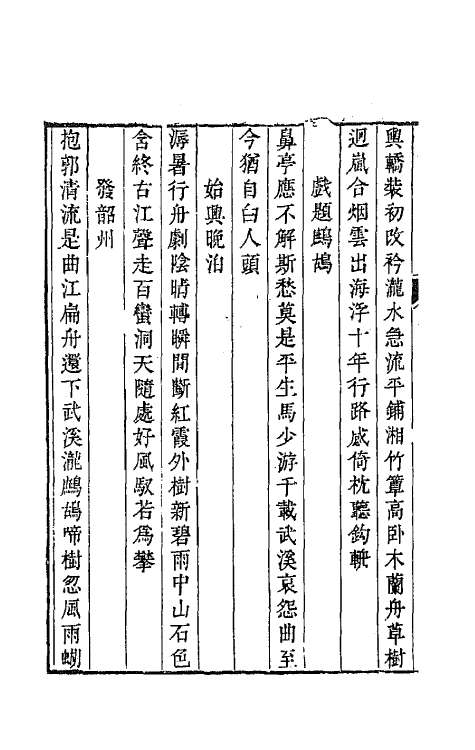 輿轎装初改衿瀧水急流平鋪湘竹簟高卧木蘭舟草樹
迴嵐合烟雲出海浮十年行路感倚枕聽鈎輈
戲題鷓鴣
鼻亭應不解斯愁莫是平生馬少游千載武溪哀怨曲至
今猶自白人頭
始興晚泊
溽暑行舟劇陰晴轉瞬間斷紅霞外樹新碧雨中山石色
含終古江聲走百蠻洞天隨處好風馭若為攀
發韶州
抱郭清流是曲江扁舟還下武溪瀧鷓鴣啼樹忽風雨蝴